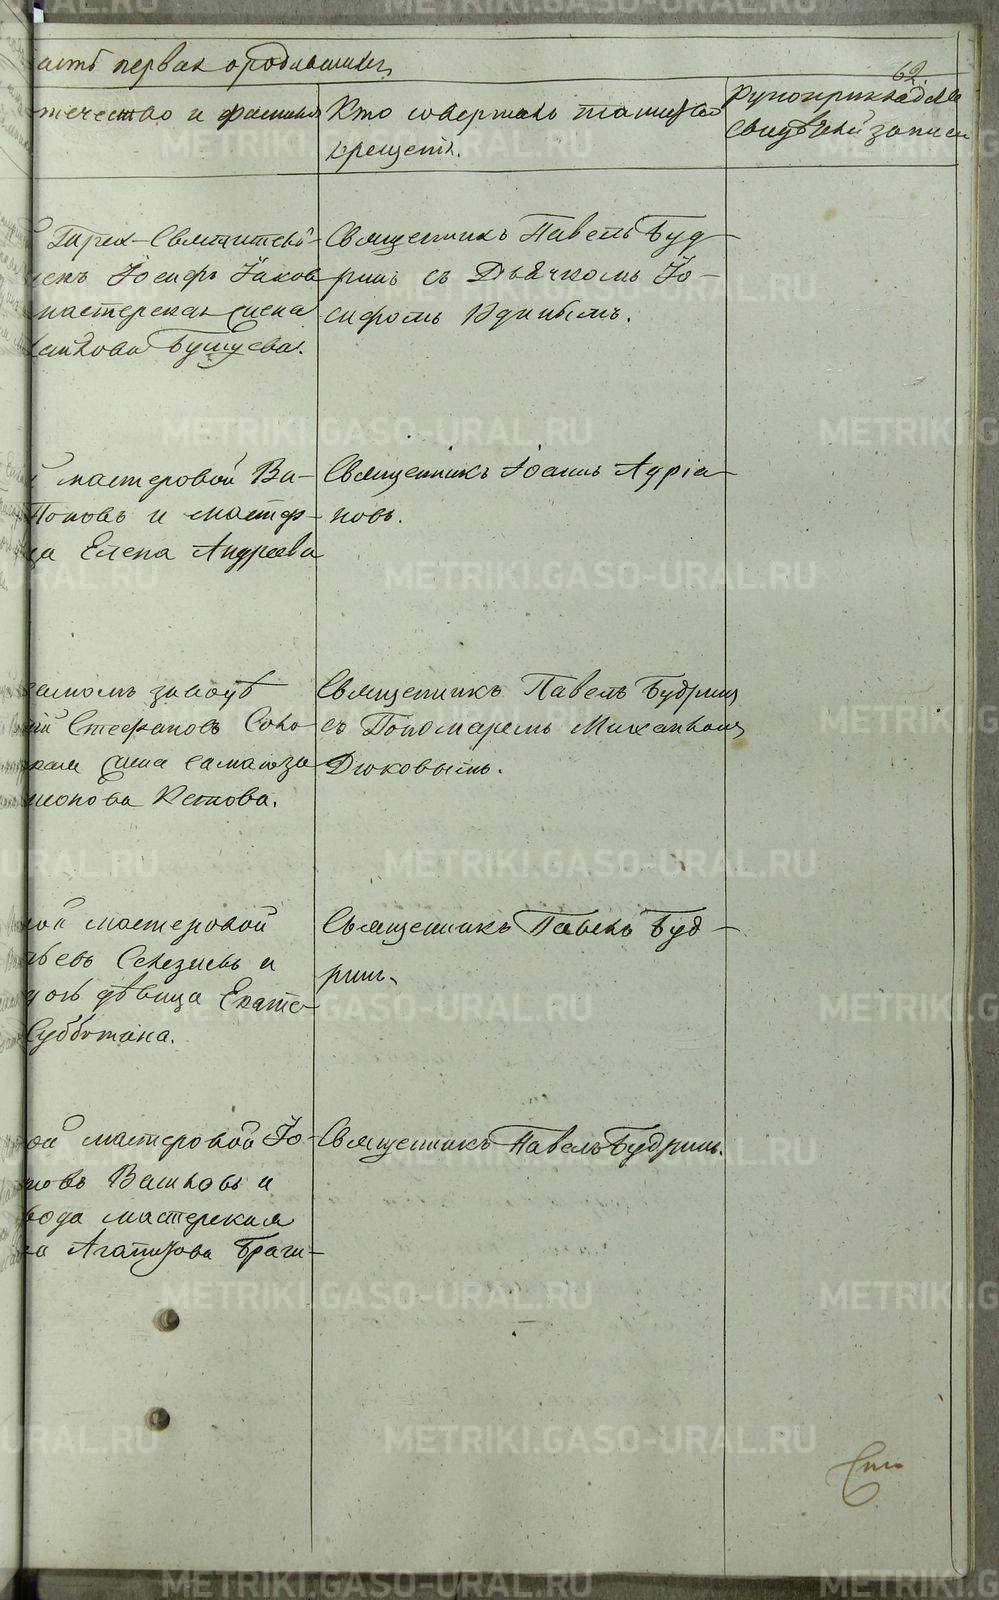 асть первая о родившихся
62.
отечество и фамилия
Кто совершалъ таинство
крещенія.
Рукоприкладство
свидѣтелей записи
Трех-Святитель-
Іосифъ Іаков
мастерская жена
Бушуева.
Священникъ Павелъ Буд-
ринъ съ Дьячкомъ Іо-
сифомъ Удинымъ.
мастеровой Ва-
Поповъ и мастер-
ца Елена Андреева
Священникъ Іоаннъ Адріа-
новъ.
заводѣ
Стефановъ Соко-
жена
Кетова.
Священникъ Павелъ Будринъ
съ Пономаремъ Михаиломъ
Дюковымъ.
мастеровой
Селезневъ и
дѣвица Екате-
Субботина.
Священникъ Павелъ Буд-
ринъ.
мастеровой Іо-
новъ Вашловъ и
вода мастерская
Агапитова Браги-
Священникъ Павелъ Будринъ.
METRIKI.GASO-URAL.RU